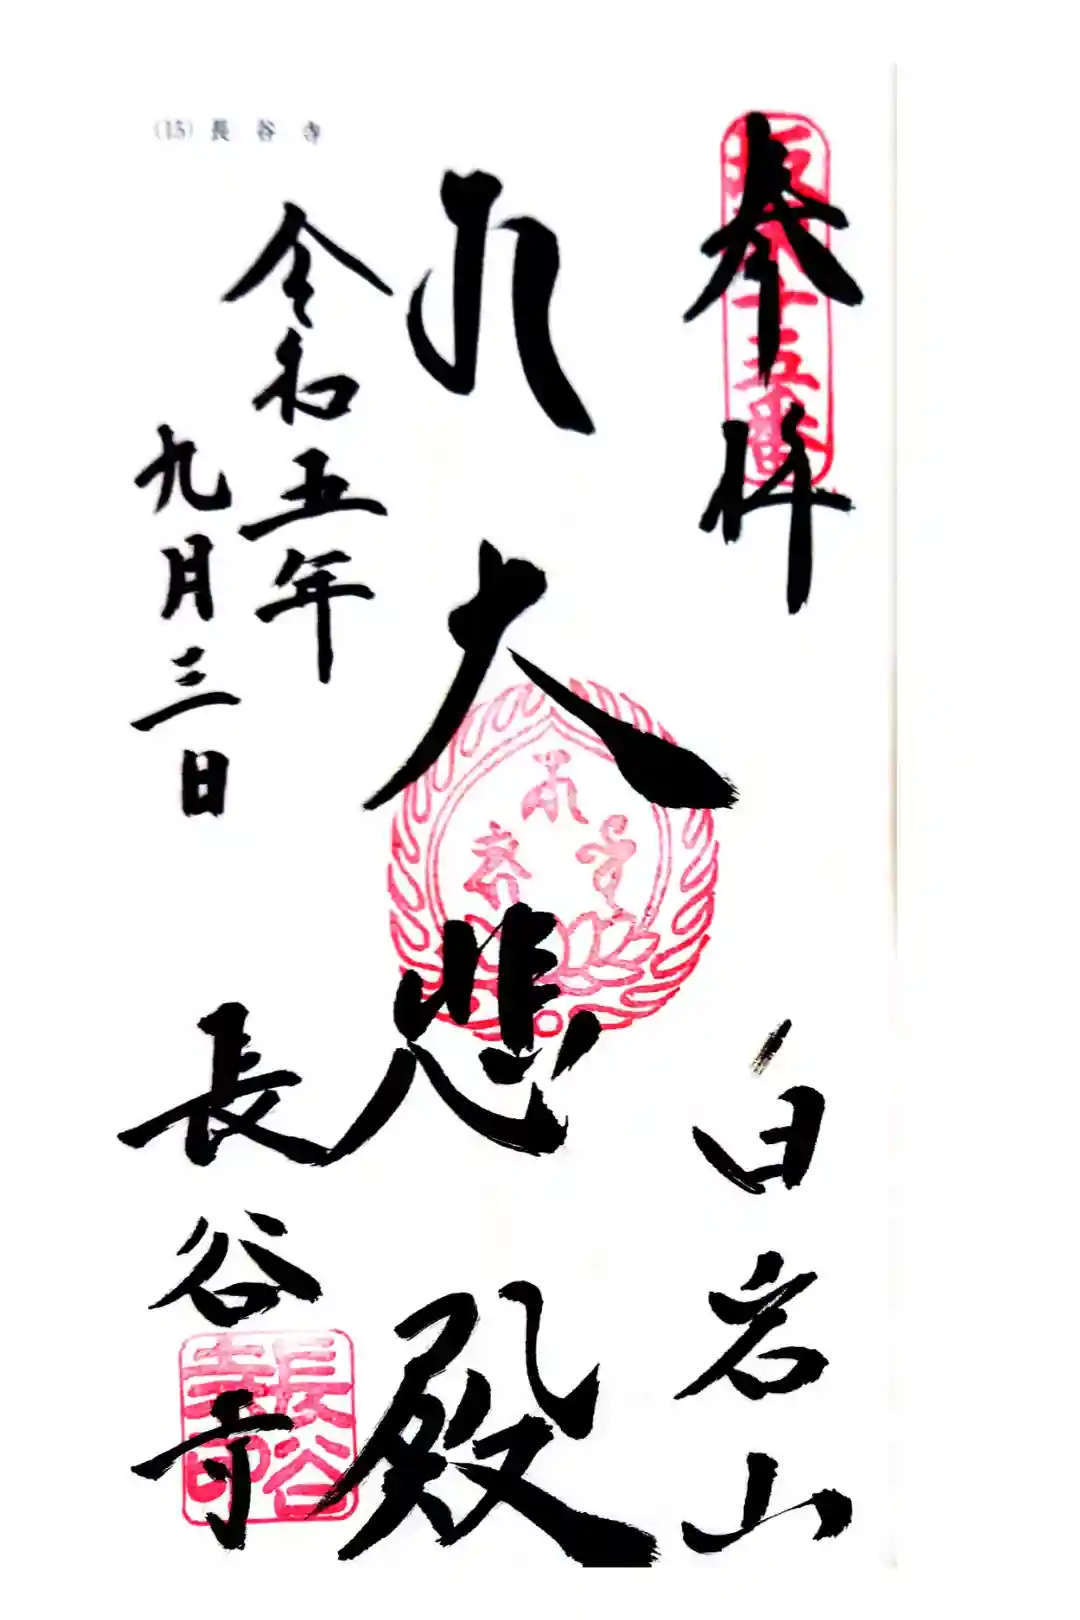 (15) 長谷寺
奉拝
坂東十五番
白岩山
大悲殿
令和五年
九月三日
長谷寺
長谷寺印